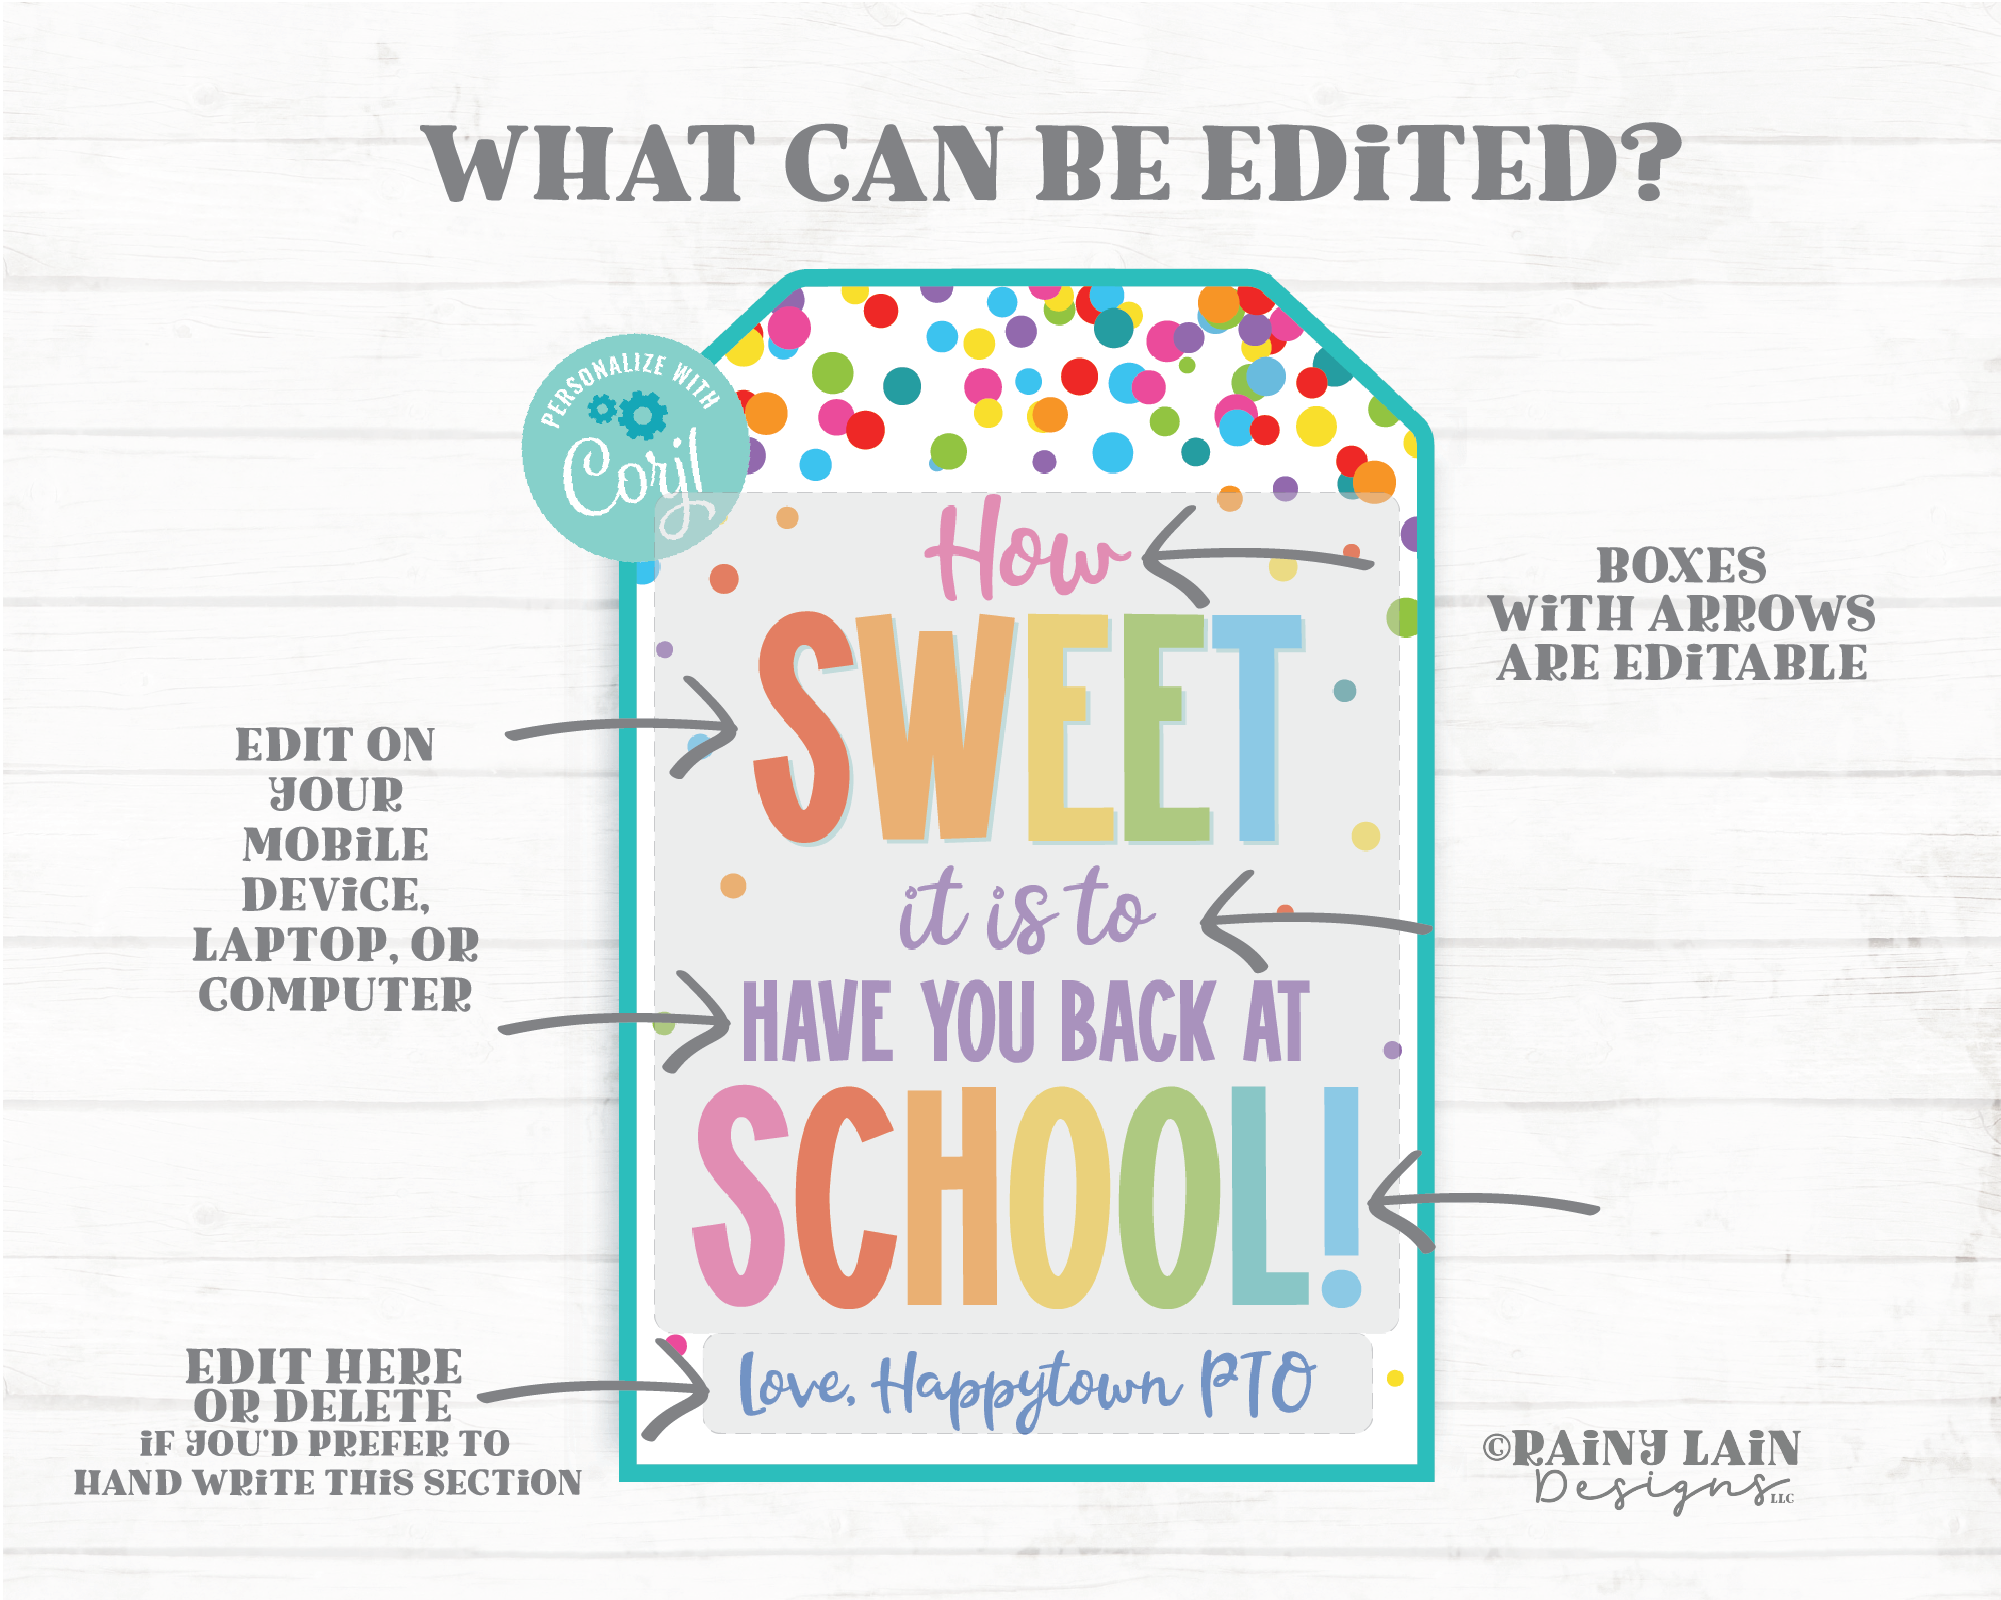 WHAT CAN BE EDiTED?
PERSONALIZE WITH
Corjl
How
SWEET
it is to
HAVE YOU BACK AT
SCHOOL!
Love, Happytown PTO
BOXES
WiTH ARROWS
ARE EDiTABLE
EDIT ON
YOUR
MOBiLE
DEViCE,
LAPTOP, OR
COMPUTER
EDIT HERE
OR DELETE
iF YOU'D PREFER TO
HAND WRiTE THiS SECTiON
©RAiNY LAiN
Designs LLC